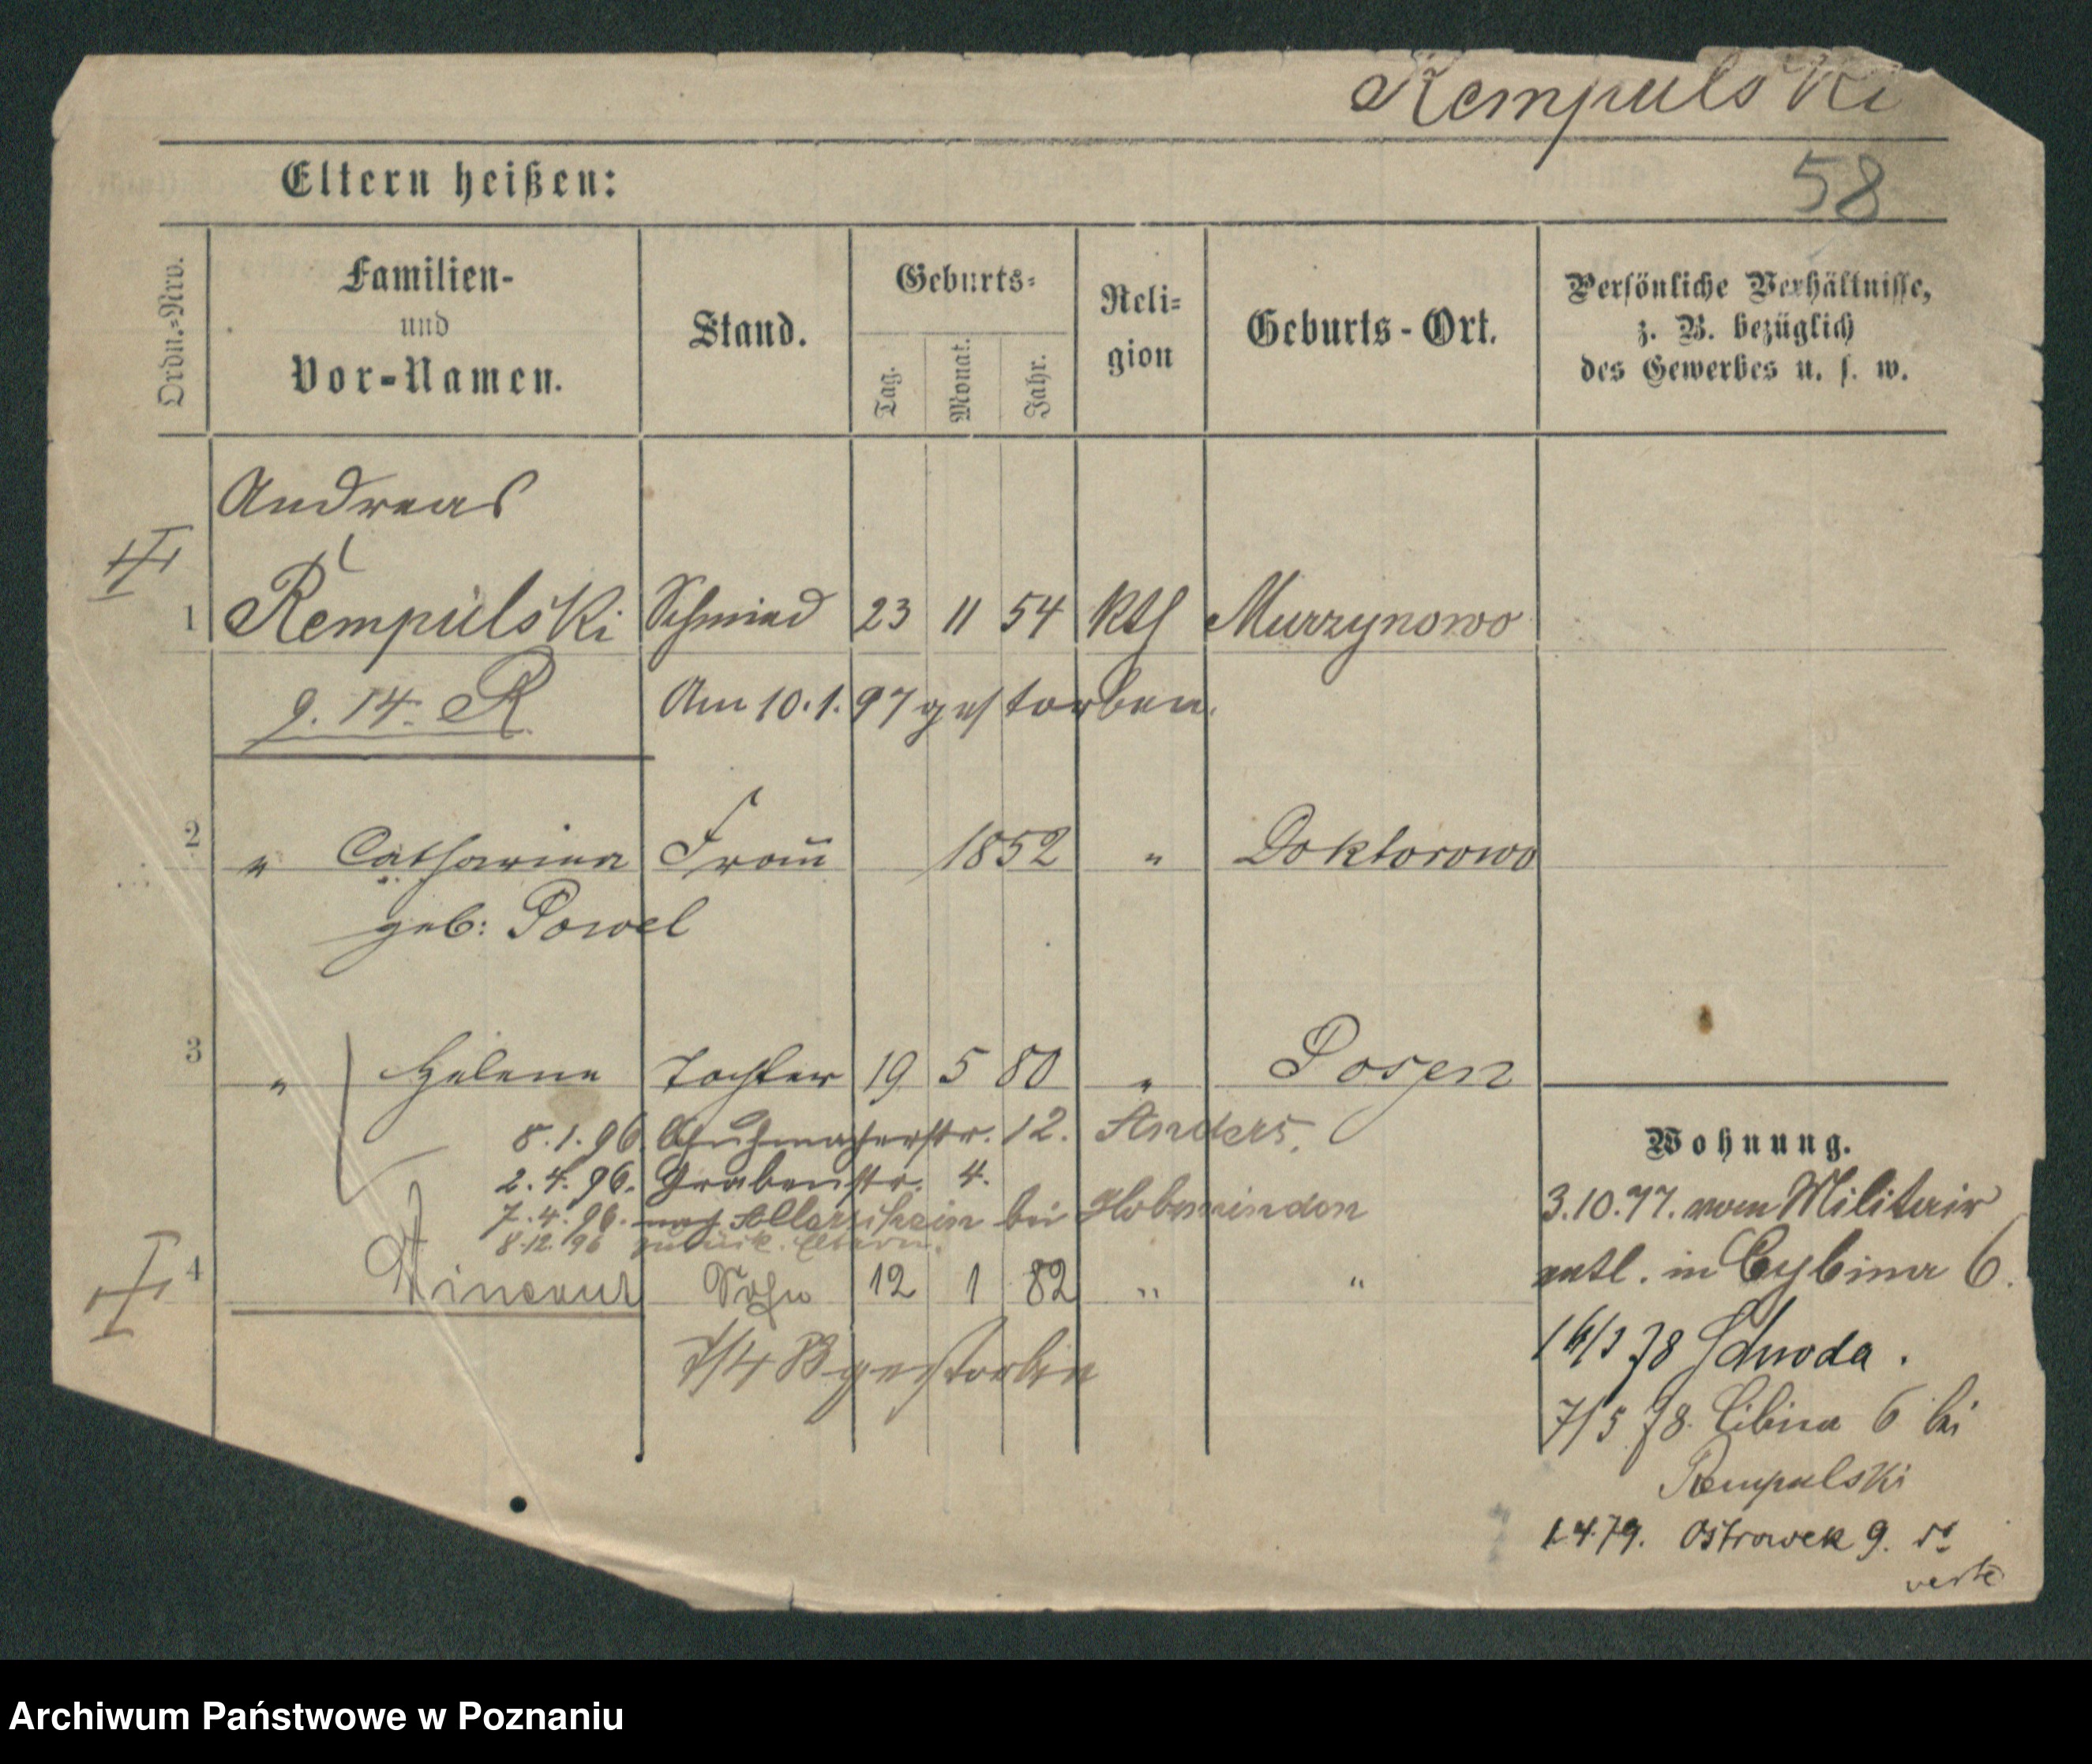 Rempulski
58
Eltern heißen:
Ordn.-Nro.
Familien-
und
Vor-Namen.
Stand.
Geburts-
Tag.
Monat.
Jahr.
Reli-
gion
Geburts-Ort.
Persönliche Verhältnisse,
z. B. bezüglich
des Gewerbes u. s. w.
Andreas
1 Rempulski Schmied 23 11 54 kth Murzynowo
9. 14. R Am 10.1.97 gestorben.
2 " Catharina Frau 1852 " Doktorowo
geb: Powel
3 " Helene Tochter 19 5 80 " Posen
8.1.96 Schuhmacherstr. 12. Anders.
2.4.96. Grabenstr. 4.
7.4.96. nach bei
8.12.96 zurück. Eltern.
4 Vincent Sohn 12 1 82 " "
gestorben
Wohnung.
3.10.77. vom Militair
entl. in Cybina 6.
78 Schroda.
7/5 78. Cibina 6 bei
Rempulski
1.4.79. Ostrowek 9.
verte
Archiwum Państwowe w Poznaniu